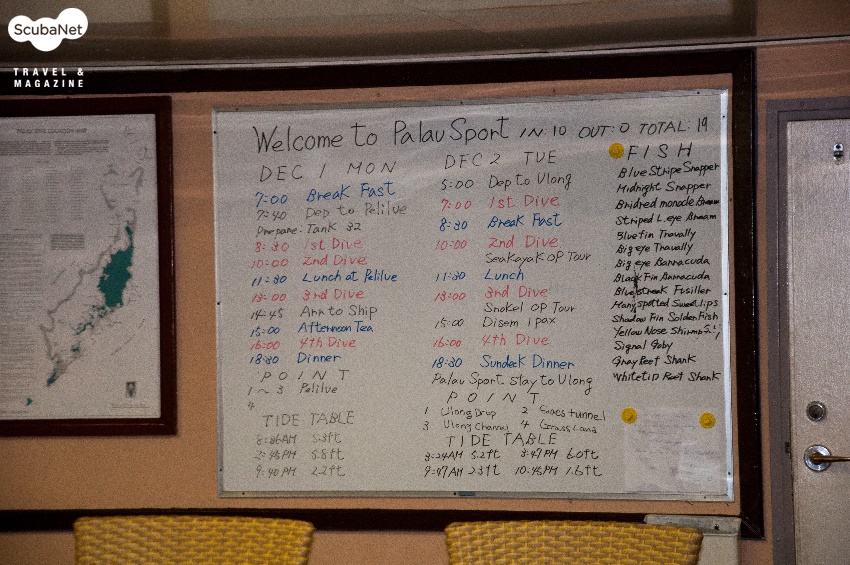 ScubaNet
TRAVEL &
MAGAZINE
Welcome to Palau Sport IN: 10 OUT: 0 TOTAL: 19
DEC 1 MON
7:00 Break Fast
7:40 Dep to Pelilue
Prepare: Tank 32
8:30 1st Dive
10:00 2nd Dive
11:30 Lunch at Pelilue
13:00 3rd Dive
14:45 Arr to Ship
15:00 Afternoon Tea
16:00 4th Dive
18:30 Dinner
POINT
1 ~ 3 Pelilue
4
TIDE TABLE
8:36AM 5.3ft
2:45PM 5.8ft
9:40 PM 2.2ft
DEC 2 TUE
5:00 Dep to Ulong
7:00 1st Dive
8:30 Break Fast
10:00 2nd Dive
Sea Kayak OP Tour
11:30 Lunch
13:00 3rd Dive
Snokel OP Tour
15:00 Disem 1pax
16:00 4th Dive
18:30 Sundeck Dinner
Palau Sport stay to Ulong
POINT
1 Ulong Drop 2 tunnel
3 Ulong Channel 4
TIDE TABLE
3:24AM 5.2ft 3:47PM 6.0ft
9:47AM 2.3ft 10:45PM 1.6ft
FISH
Blue Stripe Snapper
Midnight Snapper
Bridred monocle Bream
Striped L.eye Bream
Bluefin Travally
Big eye Travally
Big eye Barracuda
Black Fin Barracuda
Blue streak Fusiller
Many spotted Sweet lips
Shadow Fin Solder Fish
Yellow Nose
Signal Goby
Gray Reef Shark
White tip Reef Shark